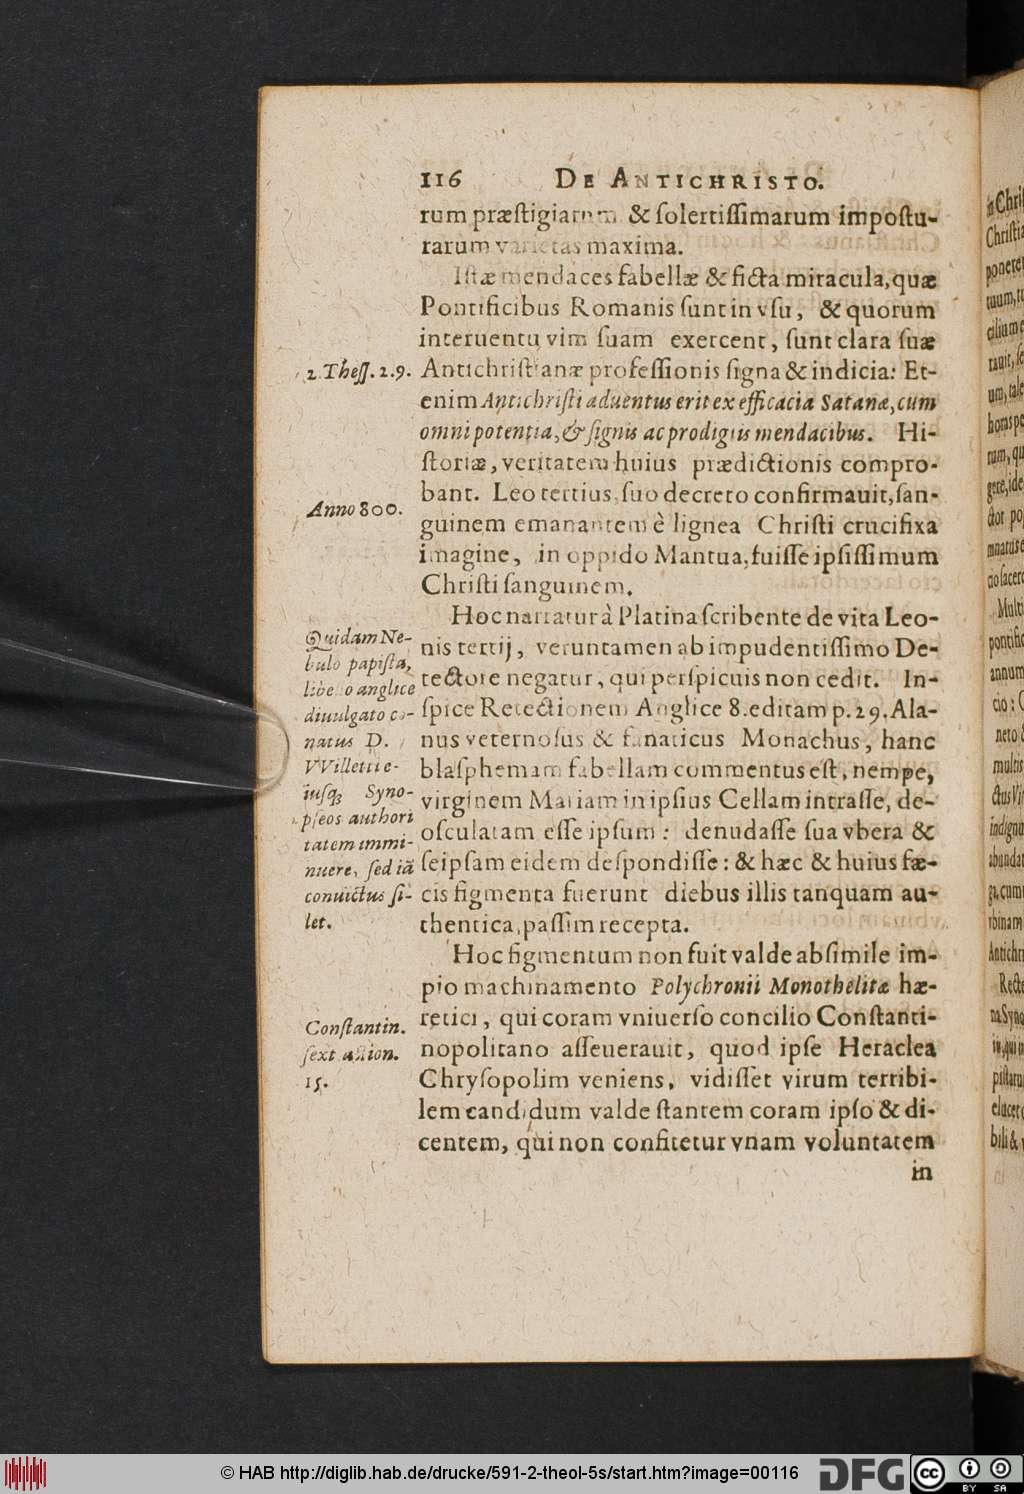 116 DE ANTICHRISTO.
rum præſtigiarum & ſolertiſſimarum impoſtu-
rarum varietas maxima.
Iſtæ mendaces fabellæ & ficta miracula, quæ
Pontificibus Romanis ſunt in vſu, & quorum
interuentu vim ſuam exercent, ſunt clara ſuæ
2. Theſſ. 2. 9.
Antichriſtianæ profeſſionis ſigna & indicia: Et-
enim Antichriſti aduentus erit ex efficacia Satanæ, cum
omni potentia, & ſignis ac prodigiis mendacibus. Hi-
ſtoriæ, veritatem huius prædictionis compro-
bant. Leo tertius, ſuo decreto confirmauit, ſan-
Anno 800.
guinem emanantem è lignea Chriſti crucifixa
imagine, in oppido Mantua, fuiſſe ipſiſſimum
Chriſti ſanguinem.
Hoc narratur à Platina ſcribente de vita Leo-
nis tertij, veruntamen ab impudentiſſimo De-
tectore negatur, qui perſpicuis non cedit. In-
ſpice Retectionem Anglice 8. editam p. 29. Ala-
nus veternoſus & fanaticus Monachus, hanc
blaſphemam fabellam commentus eſt, nempe,
virginem Mariam in ipſius Cellam intraſſe, de-
oſculatam eſſe ipſum: denudaſſe ſua vbera &
ſeipſam eidem deſpondiſſe: & hæc & huius fæ-
cis figmenta fuerunt diebus illis tanquam au-
thentica, paſſim recepta.
Quidam Ne-
bulo papiſta,
libello anglice
diuulgato co-
natus D.
VVilletti e-
iuſq; Syno-
pſeos authori
tatem immi-
nuere, ſed iã
conuictus ſi-
let.
Hoc figmentum non fuit valde abſimile im-
pio machinamento Polychronii Monothelitæ hæ-
retici, qui coram vniuerſo concilio Conſtanti-
nopolitano aſſeuerauit, quod ipſe Heraclea
Chryſopolim veniens, vidiſſet virum terribi-
lem candidum valde ſtantem coram ipſo & di-
centem, qui non confitetur vnam voluntatem
Conſtantin.
ſext. action.
15.
in
© HAB http://diglib.hab.de/drucke/591-2-theol-5s/start.htm?image=00116
DFG
cc
BY SA